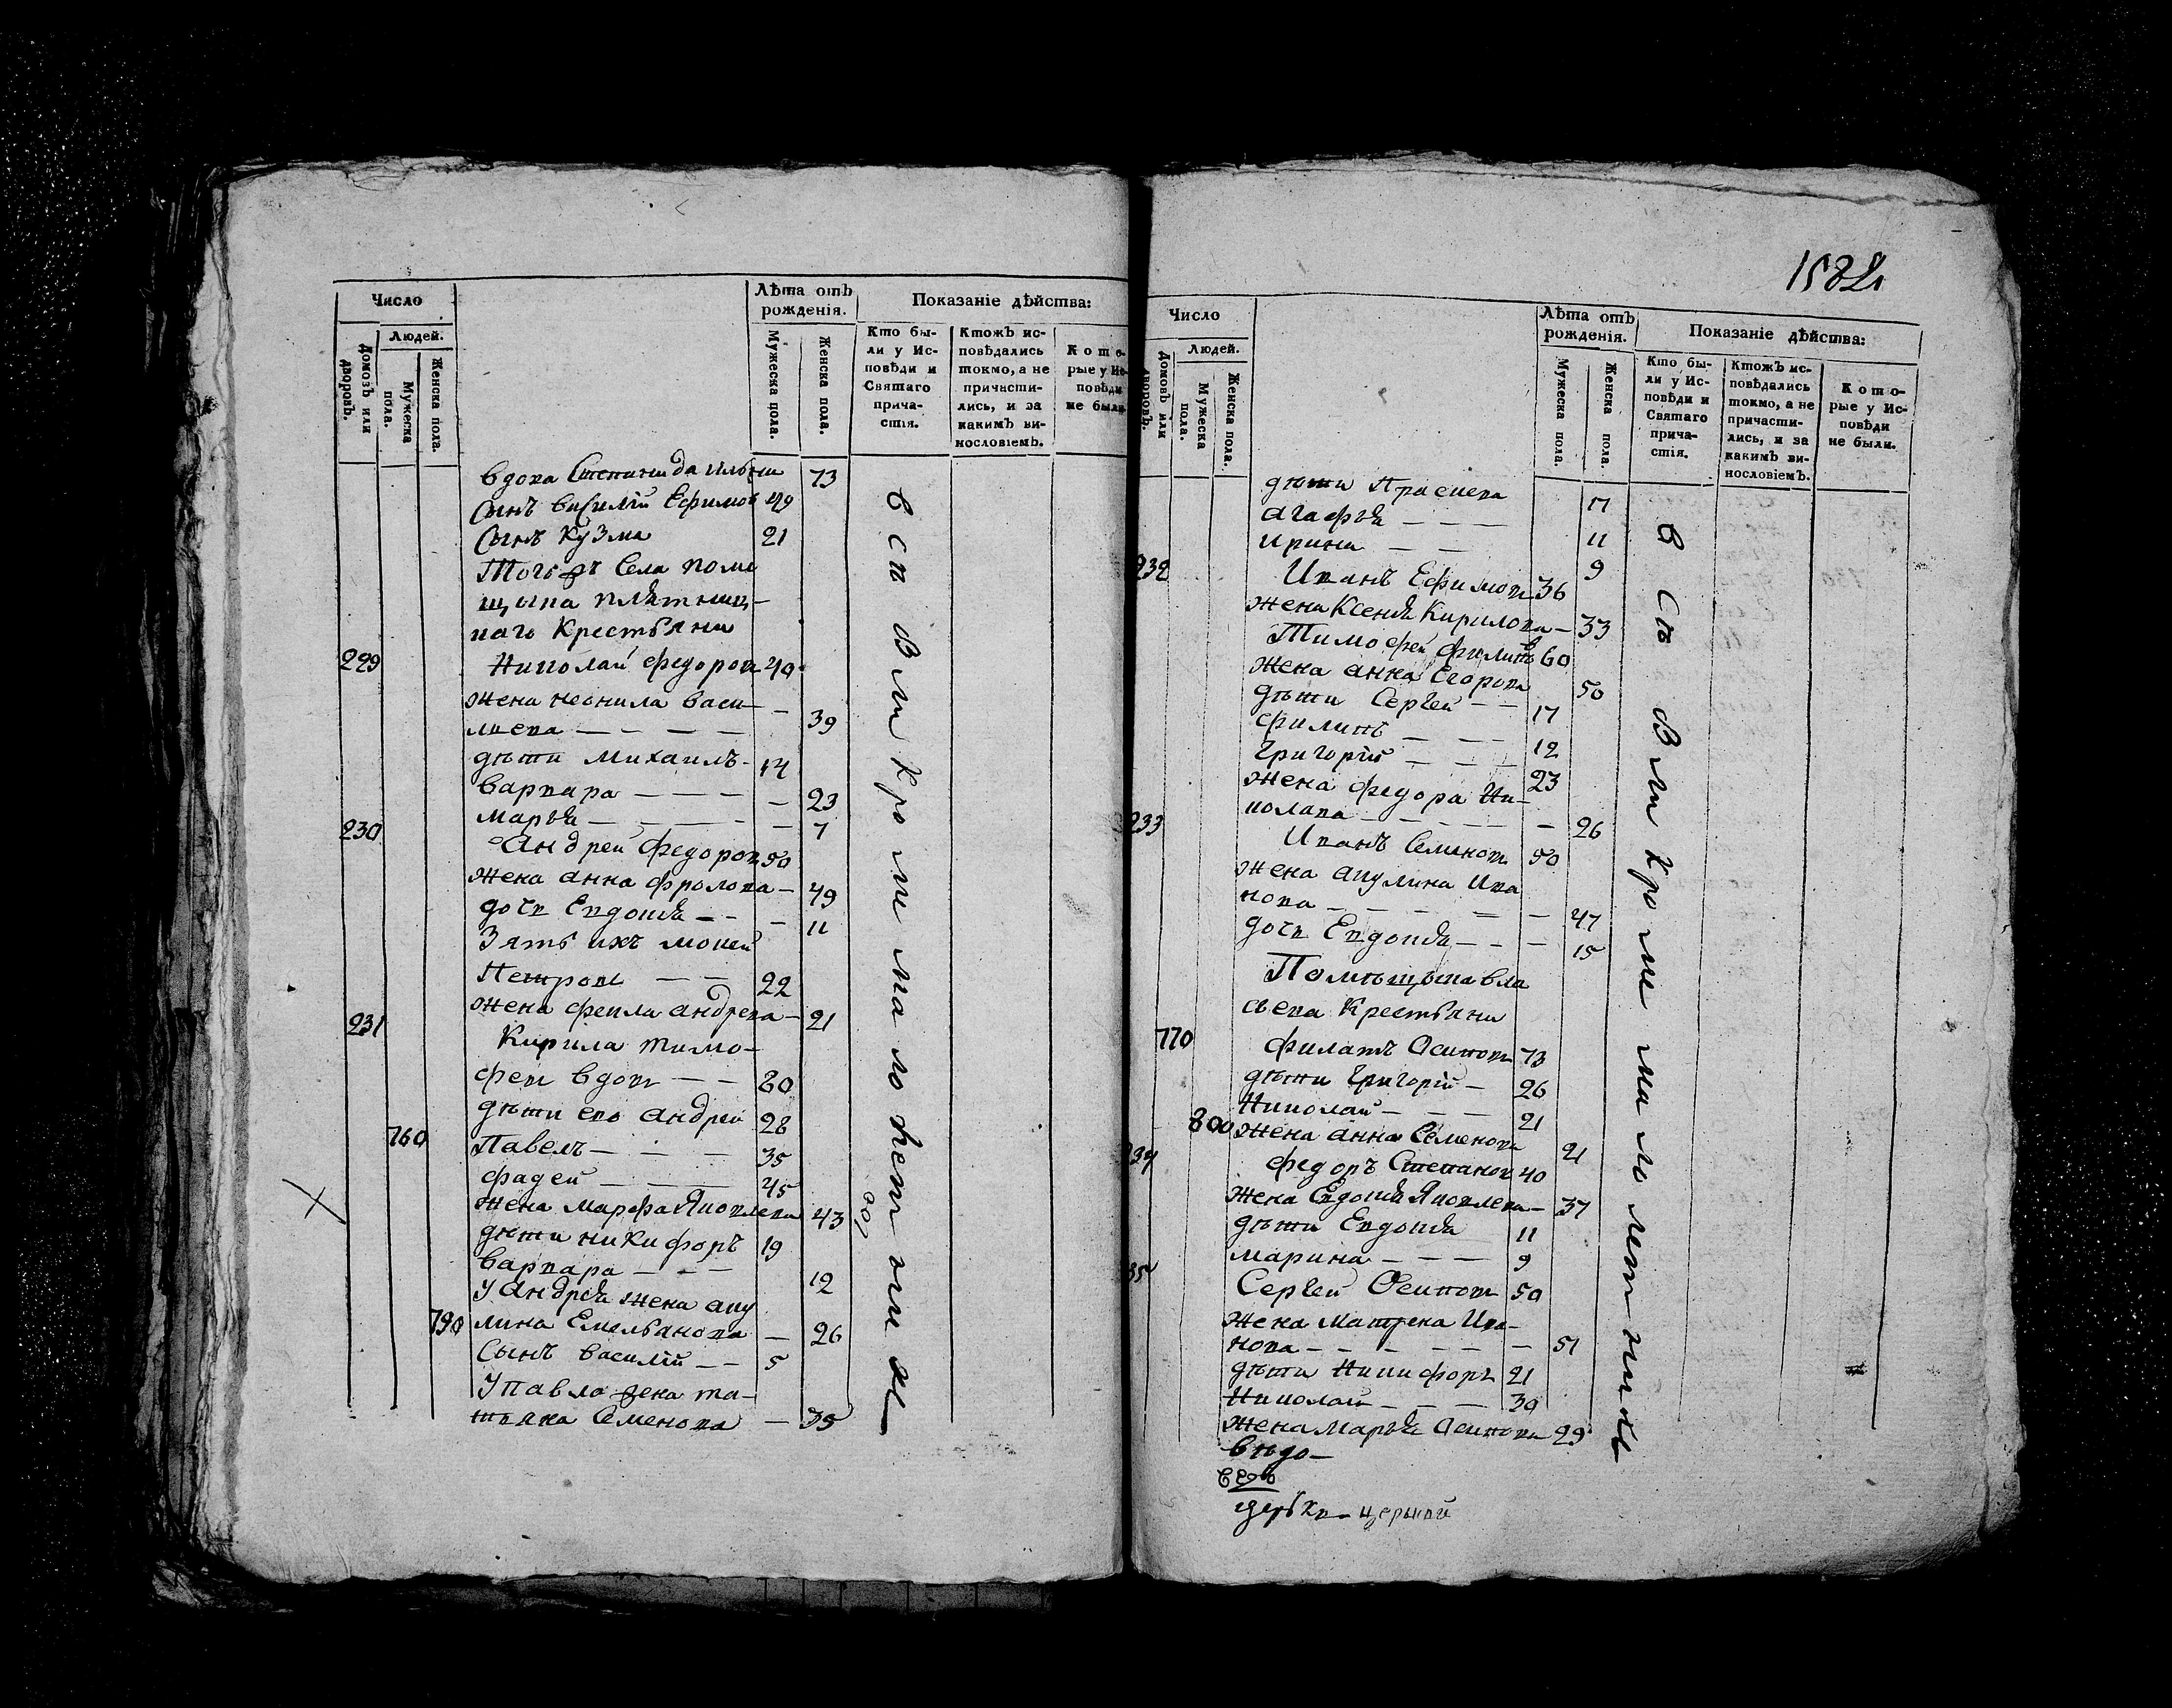 Число
Людей.
Домовъ или дворовъ.
Мужеска пола.
Женска пола.
Лѣта отъ рожденія.
Мужеска пола.
Женска пола.
Показаніе дѣйства:
Кто были у Исповѣди и Святаго причастія.
Ктожъ исповѣдались токмо, а не причастились, и за какимъ винословіемъ.
Которые у Исповѣди не были.
вдова Степанида Ильина 73
сынъ Василий Ефимов 49
сынъ Кузма 21
Тогожъ села поме
щика
наго Крестьяни
229 Николай Федоров 40
жена неонила Васи-
лиева — — — — 39
дѣти Михаилъ - 14
Варвара — — — — 23
Марья — — — — 7
230 Андреи Федоров 50
жена анна Фролова — 49
дочь Евдокия — — 11
Зять ихъ Мокей
Петров — — 22
жена Фекла андрева — 21
231 Кирила тимо-
феев вдов — — 80
дѣти ево андреи 28
760 Павелъ — — — 35
фадей — — — 45
жена Марфа Яковлева 43
дѣти никифоръ 19
Варвара — — — 12
У Андрея жена аку
790 лина Емельянова — 26
Сынъ василий — — 5
У Павла жена та-
тьяна Семенова — 35
Всѣ были кроме малолетних
1582
Число
Людей.
Домовъ или дворовъ.
Мужеска пола.
Женска пола.
Лѣта отъ рожденія.
Мужеска пола.
Женска пола.
Показаніе дѣйства:
Кто были у Исповѣди и Святаго причастія.
Ктожъ исповѣдались токмо, а не причастились, и за какимъ винословіемъ.
Которые у Исповѣди не были.
дѣти Прасковя 17
агафья — — — 11
ирина — — 9
232 Иванъ Ефимов 36
жена Ксения Кирилова — 33
Тимофеи Филипов 60
жена анна Егорова 50
дѣти Сергей — — 17
филипъ — — — 12
Григорий — — — 23
жена федора Ни-
колава — — — — — 26
233 Иванъ Семенов 50
жена акулина Ива
нова — — — — — 47
дочь Евдокия — — — 15
Помѣщика вла
сьева Крестьяни
770 Филатъ Осипов 73
дѣти Григорий — 26
Николай — — — 21
800 жена анна Семенова 21
234 Федоръ Степанов 40
жена Евдокия Яковлева — 37
дѣти Евдокия 11
марина — — — 9
35 Сергеи Осипов 50
жена Матрена Ива-
нова — — — — — — 51
дѣти Никифоръ 21
Николай — — — 30
жена Марья Осипова 29
Всѣ были кроме малолетних